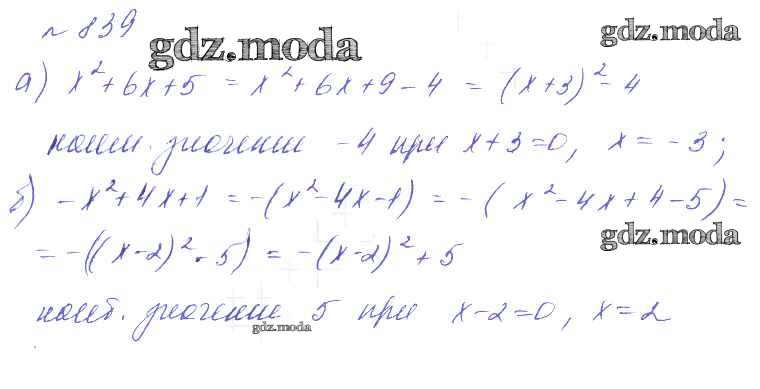 № 839
gdz.moda
gdz.moda
а) x² + 6x + 5 = x² + 6x + 9 - 4 = (x+3)² - 4
наим. значение -4 при x+3=0, x = -3;
б) -x² + 4x + 1 = -(x² - 4x - 1) = -(x² - 4x + 4 - 5) =
gdz.moda
= -((x-2)² - 5) = -(x-2)² + 5
наиб. значение 5 при x-2=0, x=2
gdz.moda